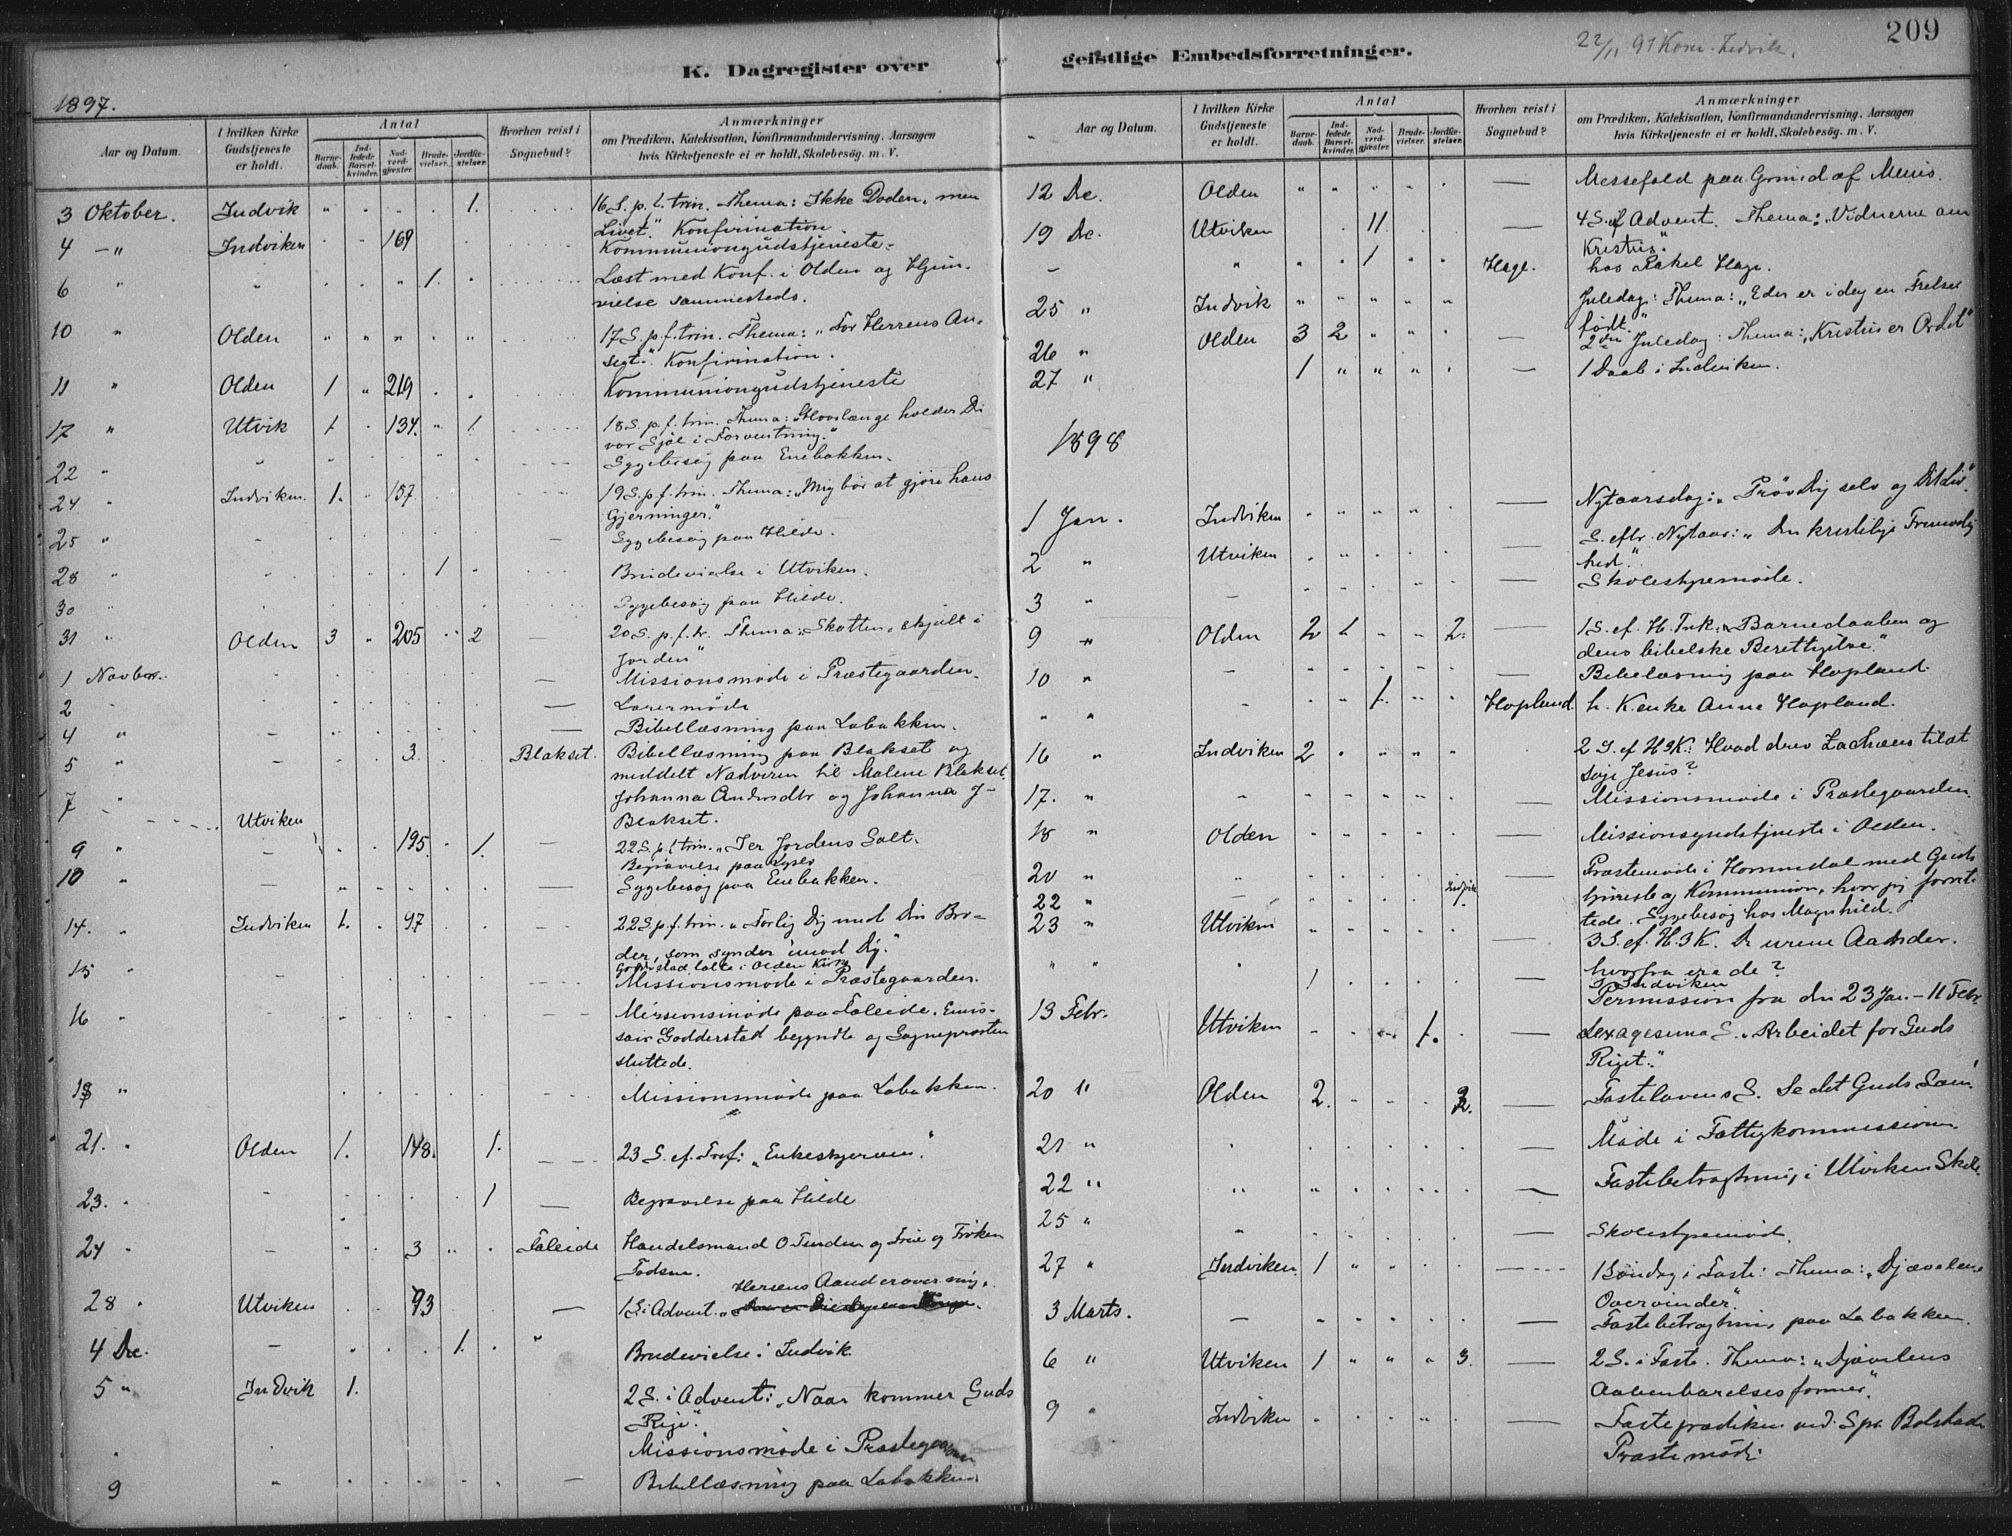 209
22/11 97 Kom. Indvik.
K. Dagregister over geistlige Embedsforretninger.
1897.
Aar og Datum.
I hvilken Kirke Gudstjeneste er holdt.
Antal
Barne-daab.
Ind-ledede Barsel-kvinder.
Nad-verd-gjæster.
Brude-vielser.
Jordfæ-stelser.
Hvorhen reist i Sognebud?
Anmærkninger
om Prædiken, Katekisation, Konfirmandundervisning, Aarsagen
hvis Kirketjeneste ei er holdt, Skolebesög m. V.
3 Oktober. Indvik " . . . 1. 16 S. p. t. trin. Thema: Ikke Døden, men
Livet." Konfirmation.
4 – " Indviken . . 169 Kommuniongudstjeneste.
6 " " . . " 1. Læst med Konf. i Olden og Hjem-
vielse sammesteds.
10 " Olden " " " " " 17 S. p. f. trin. Thema: "For Herrens An-
sigt." Konfirmation.
11 " Olden 1 " 219 . . Kommuniongudstjeneste
17 " Utvik 1 . 134. " 1. 18 S. p. f. trin. Thema: Hvorlænge holder Du
vor Sjæl i Forventning."
22 " Sygebesøg paa Enebakken.
24 " Indviken. 1. . 157. 19 S. p. f. trin. Thema: "Mig bør at gjøre hans
Gjerninger."
25 " – Sygebesøg paa Hilde.
28 " 1 Brudevielse i Utviken.
30 " Sygebesøg paa Hilde.
31 " Olden 3 " 205 " 2 – 20 S. p. f. tr. Thema: "Skatten, skjult i
Jorden"
1 Novbr. – Missionsmøde i Præstegaarden.
2 " – Lærermøde
4 " – – Bibellæsning paa Lobakken.
5 " – 3 Blakset. Bibellæsning paa Blakset og
meddelt Nadveren til Malene Blakset
Johanna Andersdtr og Johanna J-
Blakset.
7 " Utviken 195. 1. – 22 S. p. f. trin. "I er Jordens Salt.
9 " – Begravelse paa
10 " – – Sygebesøg paa Enebakken.
14. " Indviken 1. . 97. 22 S. p. f. trin. "Forlig Dig med Din Bro-
der, som synder imod Dig."
talte i Olden Kirke
15 " – Missionsmøde i Præstegaarden.
16 " – Missionsmøde paa Faleide. Emis-
sær Godderstad begyndte og Sognepræsten
sluttede.
18 " Missionsmøde paa Lobakken.
21. " Olden 1. 148. 1. 23 S. ef. Tref: "Enkeskjærven".
23. " – 1 Begravelse paa Hilde
24 " – 3 " . Faleide Handelsmand O Tenden og Frue og Frøken
Todsen.
28 " Utviken 93 – 1 S. i Advent. " Herrens Aand er over mig".
4 De. – 1. " Brudevielse i Indvik
5 " Indvik 1. 2 S. i Advent: "Naar kommer Guds
Rige".
" Missionsmøde i Præstegaarden
9 " – Bibellæsning paa Lobakken
Aar og Datum.
I hvilken Kirke Gudstjeneste er holdt.
Antal
Barne-daab.
Ind-ledede Barsel-kvinder.
Nad-verd-gjæster.
Brude-vielser.
Jordfæ-stelser.
Hvorhen reist i Sognebud?
Anmærkninger
om Prædiken, Katekisation, Konfirmandundervisning, Aarsagen
hvis Kirketjeneste ei er holdt, Skolebesög m. V.
12 De. Olden " " " " " – Messefald paa Grund af Menis.
19 De. Utviken 11. – 4 S. af Advent. Thema: "Vidnerne om
Kristus".
– " 1 Hage. hos Rakel Hage.
25 " Indvik " " " " " Juledag: Thema: "Eder er i dag en Frelser
født."
26 " Olden 3 2 " " . – 2den Juledag: Thema: "Kristus er Ordet"
27 " 1 " " " . – 1 Daab i Indviken.
1898
1 Jan. Indviken – Nytaarsdag: "Prøv Dig selv og Dit Liv".
2 " Utviken – S. eftr. Nytaar: "Den kristelige Frimodig
hed."
3 " – – Skolestyremøde.
9 " Olden 2 1 " " 2. – 1 S. ef. H. Trk. "Barnedaaben og
dens bibelske Berettigelse."
10 " – – Bibelæsning paa Hopland.
" " – 1. Hopland h. Kenke Anne Hopland.
16 " Indviken 2 2 S. ef H3K: Hvad drev Zachæus til at
søge Jesus?
17. " " – Missionsmøde i Præstegaarden.
18 " Olden – Missionsgudstjeneste i Olden.
20 " " Præstemøde i Hornindal med Guds
22 " Indvik 1. tjeneste og Kommunion, hvor jeg forret-
tede. Sygebesøg hos Magnhild.
23 " Utviken – 3 S. ef. H. 3 K. De urene Aander.
hvorfra ere de?
" " . 1 I Indviken
Permission fra den 23 Jan. – 11 Febr.
13 Febr. Utviken 1. – Sexagesima S. "Arbeidet for Guds
Riget."
20 " Olden 2. 2. – Fastelavens S. Se det Guds Lam!
21 " – Møde i Fattigkommissionen
22 " " – Fastebetragtning i Utvikens Skole.
25 " " – Skolestyremøde.
27 " Indviken. 1 " " 1 Søndag i Faste: Thema: "Djævelens
Overvinder".
3 Marts. – – Fastebetragtning paa Lobakken.
6 " Utviken 1 " " " 3. – 2 S. i Faste. Thema: "Djævelens
Aabenbarelsesformer".
9 " Indviken – Fasteprædiken ved Spr. Bolstad
Præstemøde